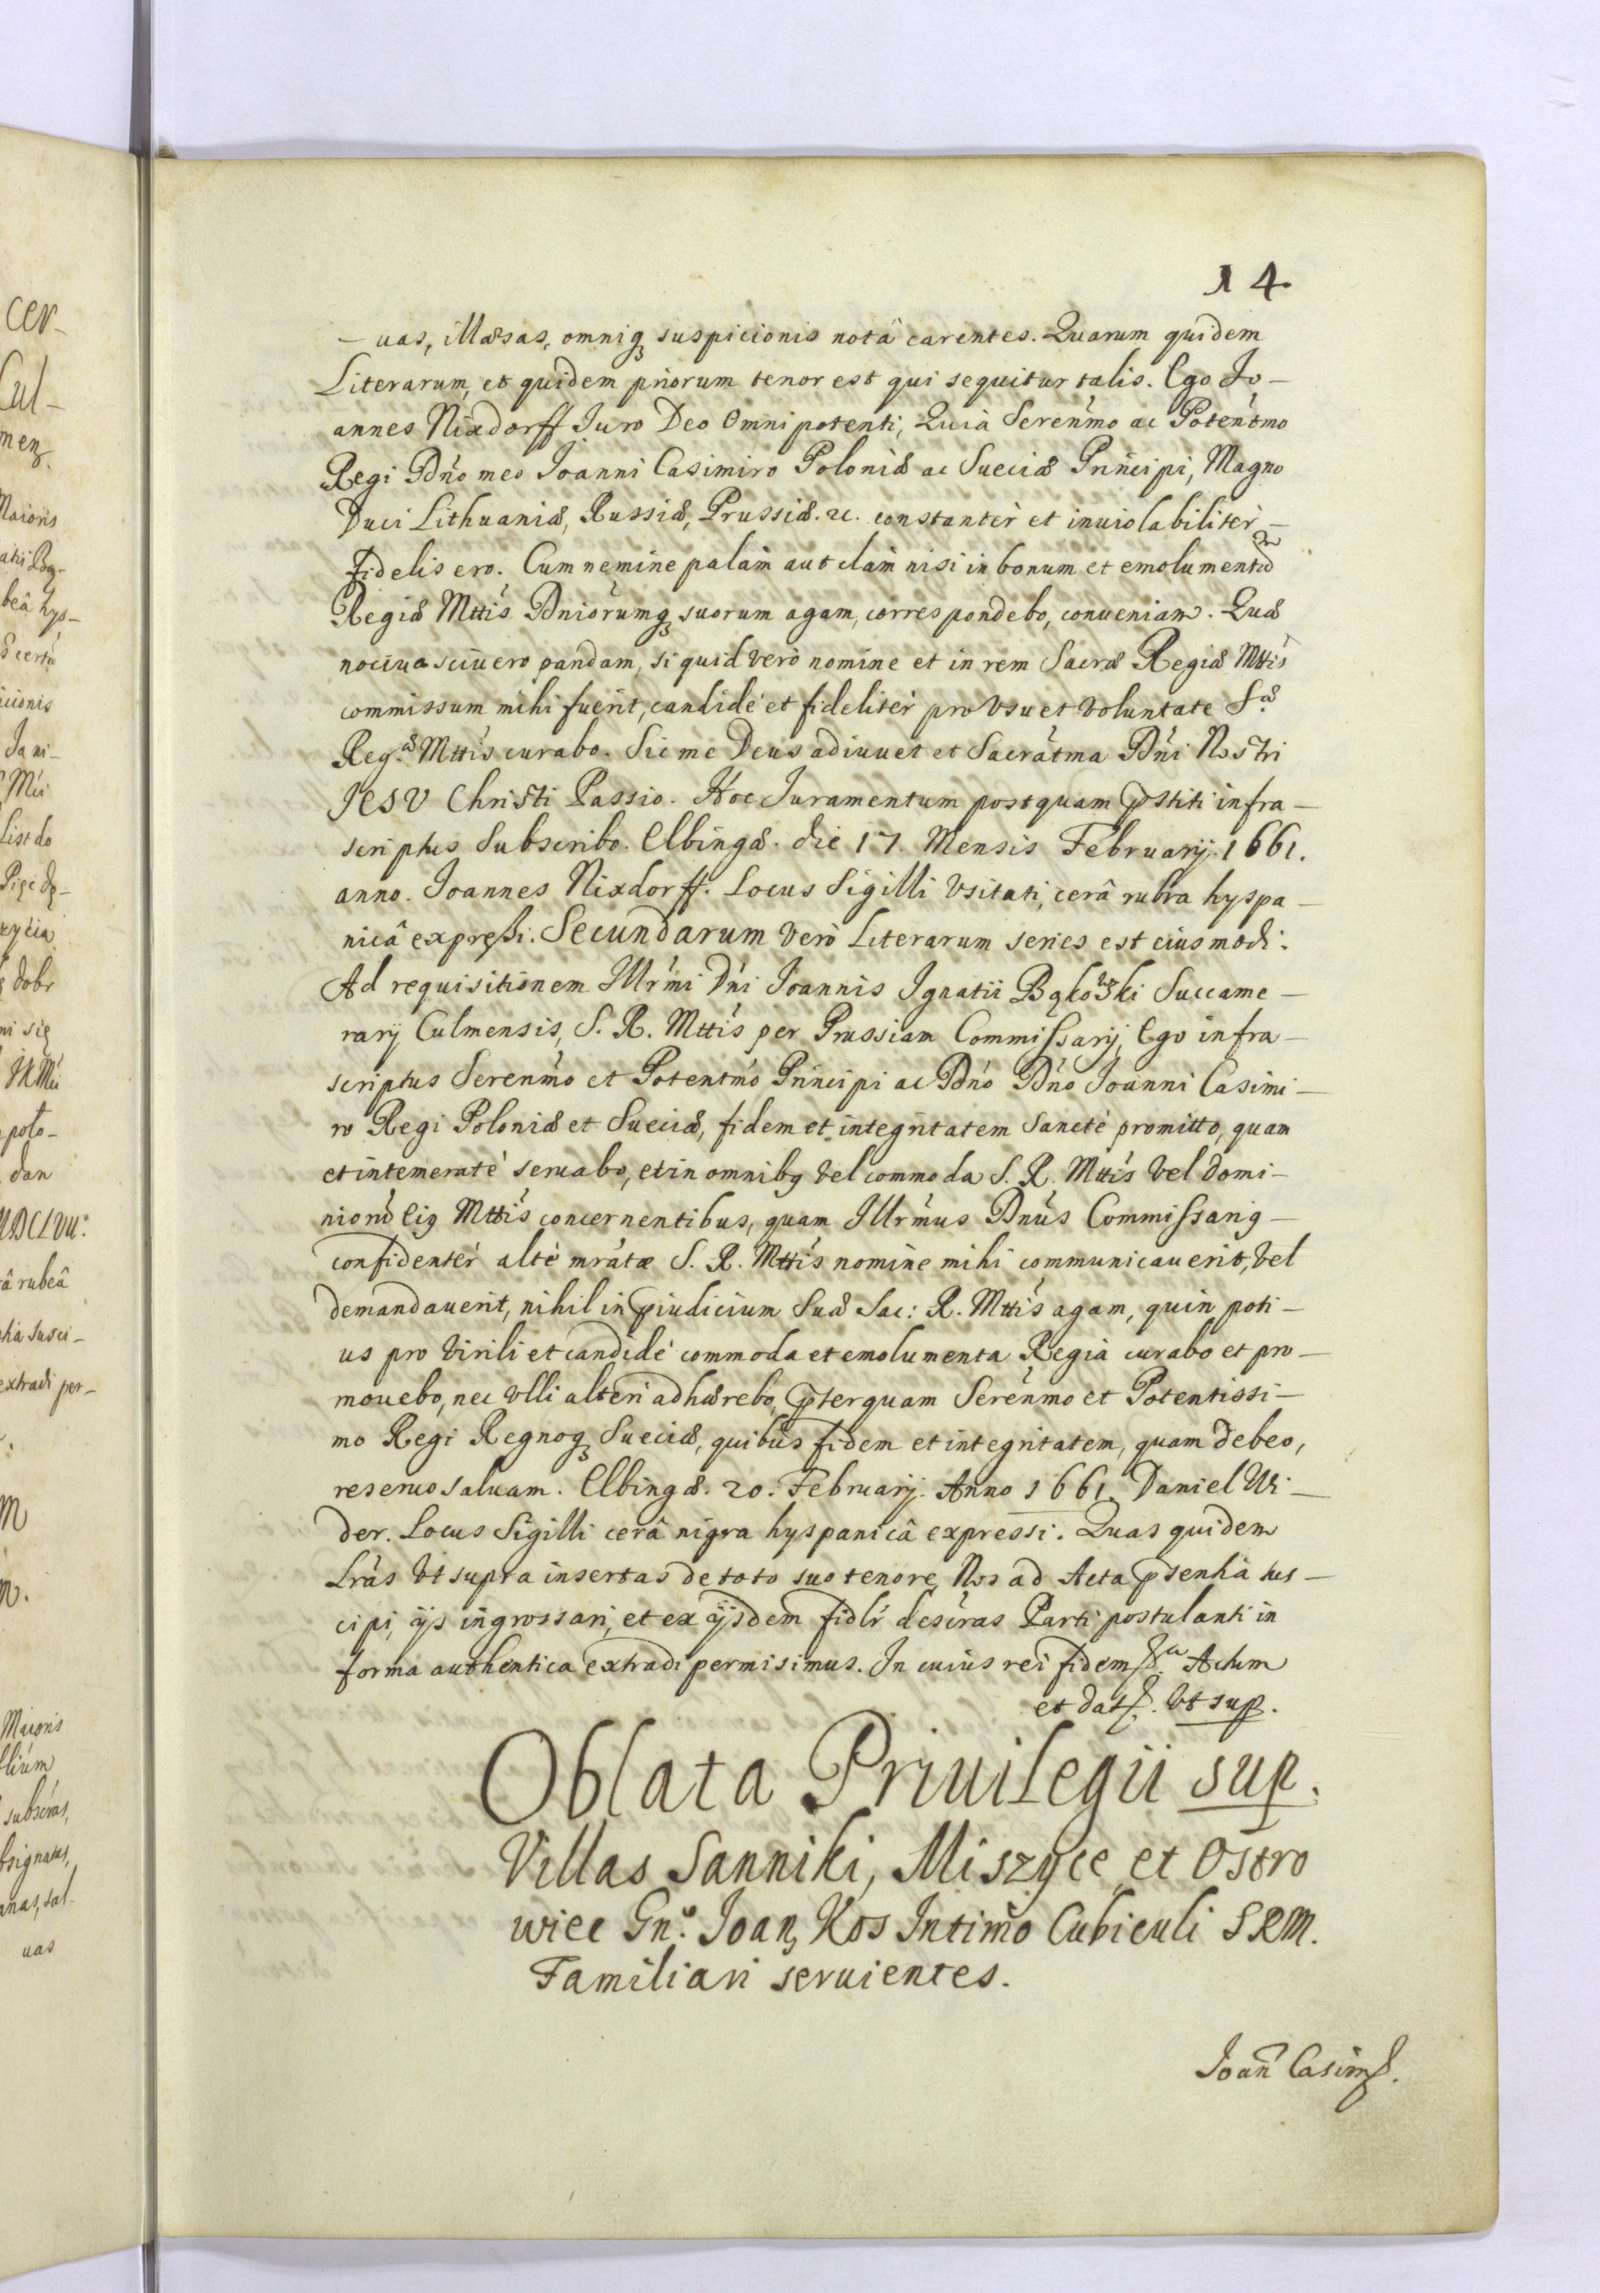 14.
– uas, illæsas, omniq₃ suspicionis notâ carentes. Quarum quidem
Literarum, et quidem priorum tenor est qui sequitur talis. Ego Jo–
annes Nixdorff Iuro Deo Omnipotenti, Quià Serenmo ac Potentmo
Regi Dno meo Joanni Casimiro Poloniæ ac Sueciæ Principi, Magno
Duci Lithuaniæ, Russiæ, Prussiæ. 2c. constantèr et inuiolabilitèr –
fidelis ero. Cum nemine palàm aut clàm nisi in bonum et emolumentũ
Regiæ Mttis Dniorumq₃ suorum agam, correspondebo, conueniam. Quæ
nociua sciuero pandam, si quid verò nomine et in rem Sacræ Regiæ Mttis
commissum mihi fuerit, candidé et fidelitèr pro vsu et voluntate Sæ
Reg.æ Mttis curabo. Sic me Deus adiuuet et Sacratma Dni Nostri
JESV Christi Passio. Hoc Iuramentum postquam p̄stiti infra –
scriptus Subscribo. Elbingæ. die 17. Mensis Februarij. 1661.
anno. Joannes Nixdorff. Locus Sigilli vsitati, cerâ rubra hyspa –
nicâ expressi. Secundarum verò Literarum series est eiusmodi:
Ad requisitionem Illrmi Dni Joannis Ignatii Bąkowski Succame –
rarij Culmensis, S. R. Mttis per Prussiam Commissarij, Ego infra –
scriptus Serenmo et Potentmo Principi ac Dno Dno Joanni Casimi –
ro Regi Poloniæ et Sueciæ, fidem et integritatem Sancté promitto, quam
et intemeraté seruabo, et in omnibq vel commoda S. R. Mttis vel Domi –
niorũ eiq Mttis concernentibus, quam Illrmus Dnus Commissariq –
confidentèr alté mratæ S. R. Mttis nomine mihi communicauerit, vel
demandauerit, nihil in p̄iudicium Suæ Sac: R. Mttis agam, quin poti –
us pro virili et candidé commoda et emolumenta Regia curabo et pro –
mouebo, nec vlli alteri adhærebo, p̄terquam Serenmo et Potentissi –
mo Regi Regnoq₃ Sueciæ, quibus fidem et integritatem, quam debeo,
reseruo saluam. Elbingæ. 20. Februarij. Anno 1661. Daniel Wi –
der. Locus Sigilli cerâ nigra hyspanicâ expressi. Quas quidem
Lras vt supra insertas de toto suo tenore, Nos ad Acta p̄sentia sus –
cipi, ijs ingrossari, et ex ijsdem fidlr descras Parti postulanti in
forma authentica extradi permisimus. In cuius rei fidem Actum
et dat. vt sup.
Oblata Priuilegii sup.
Villas Sanniki, Miszyce et Ostro
wice Gn.o Joan, Kos Intimo Cubiculi SRM.
Familiari seruientes.
Joañ Casim.